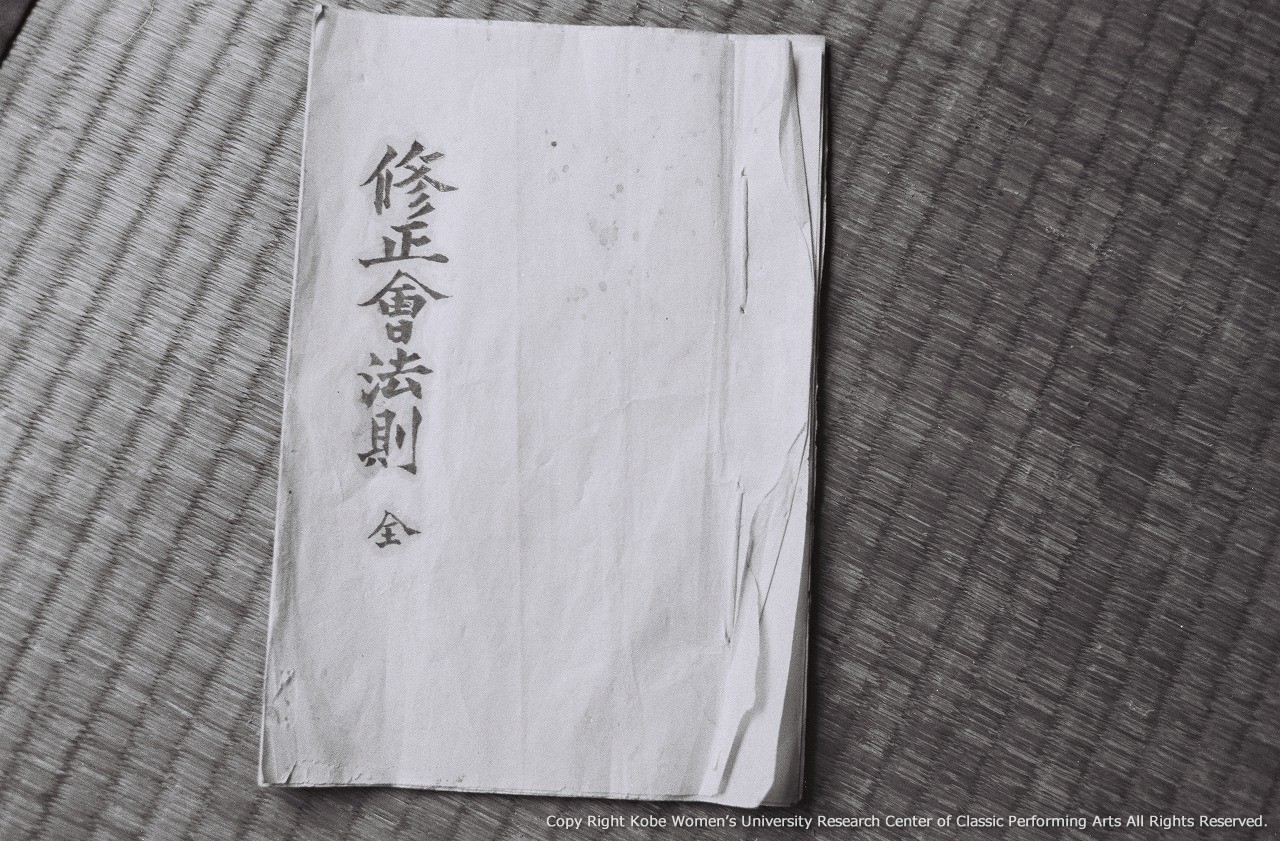 修正會法則
全
Copy Right Kobe Women’s University Research Center of Classic Performing Arts All Rights Reserved.